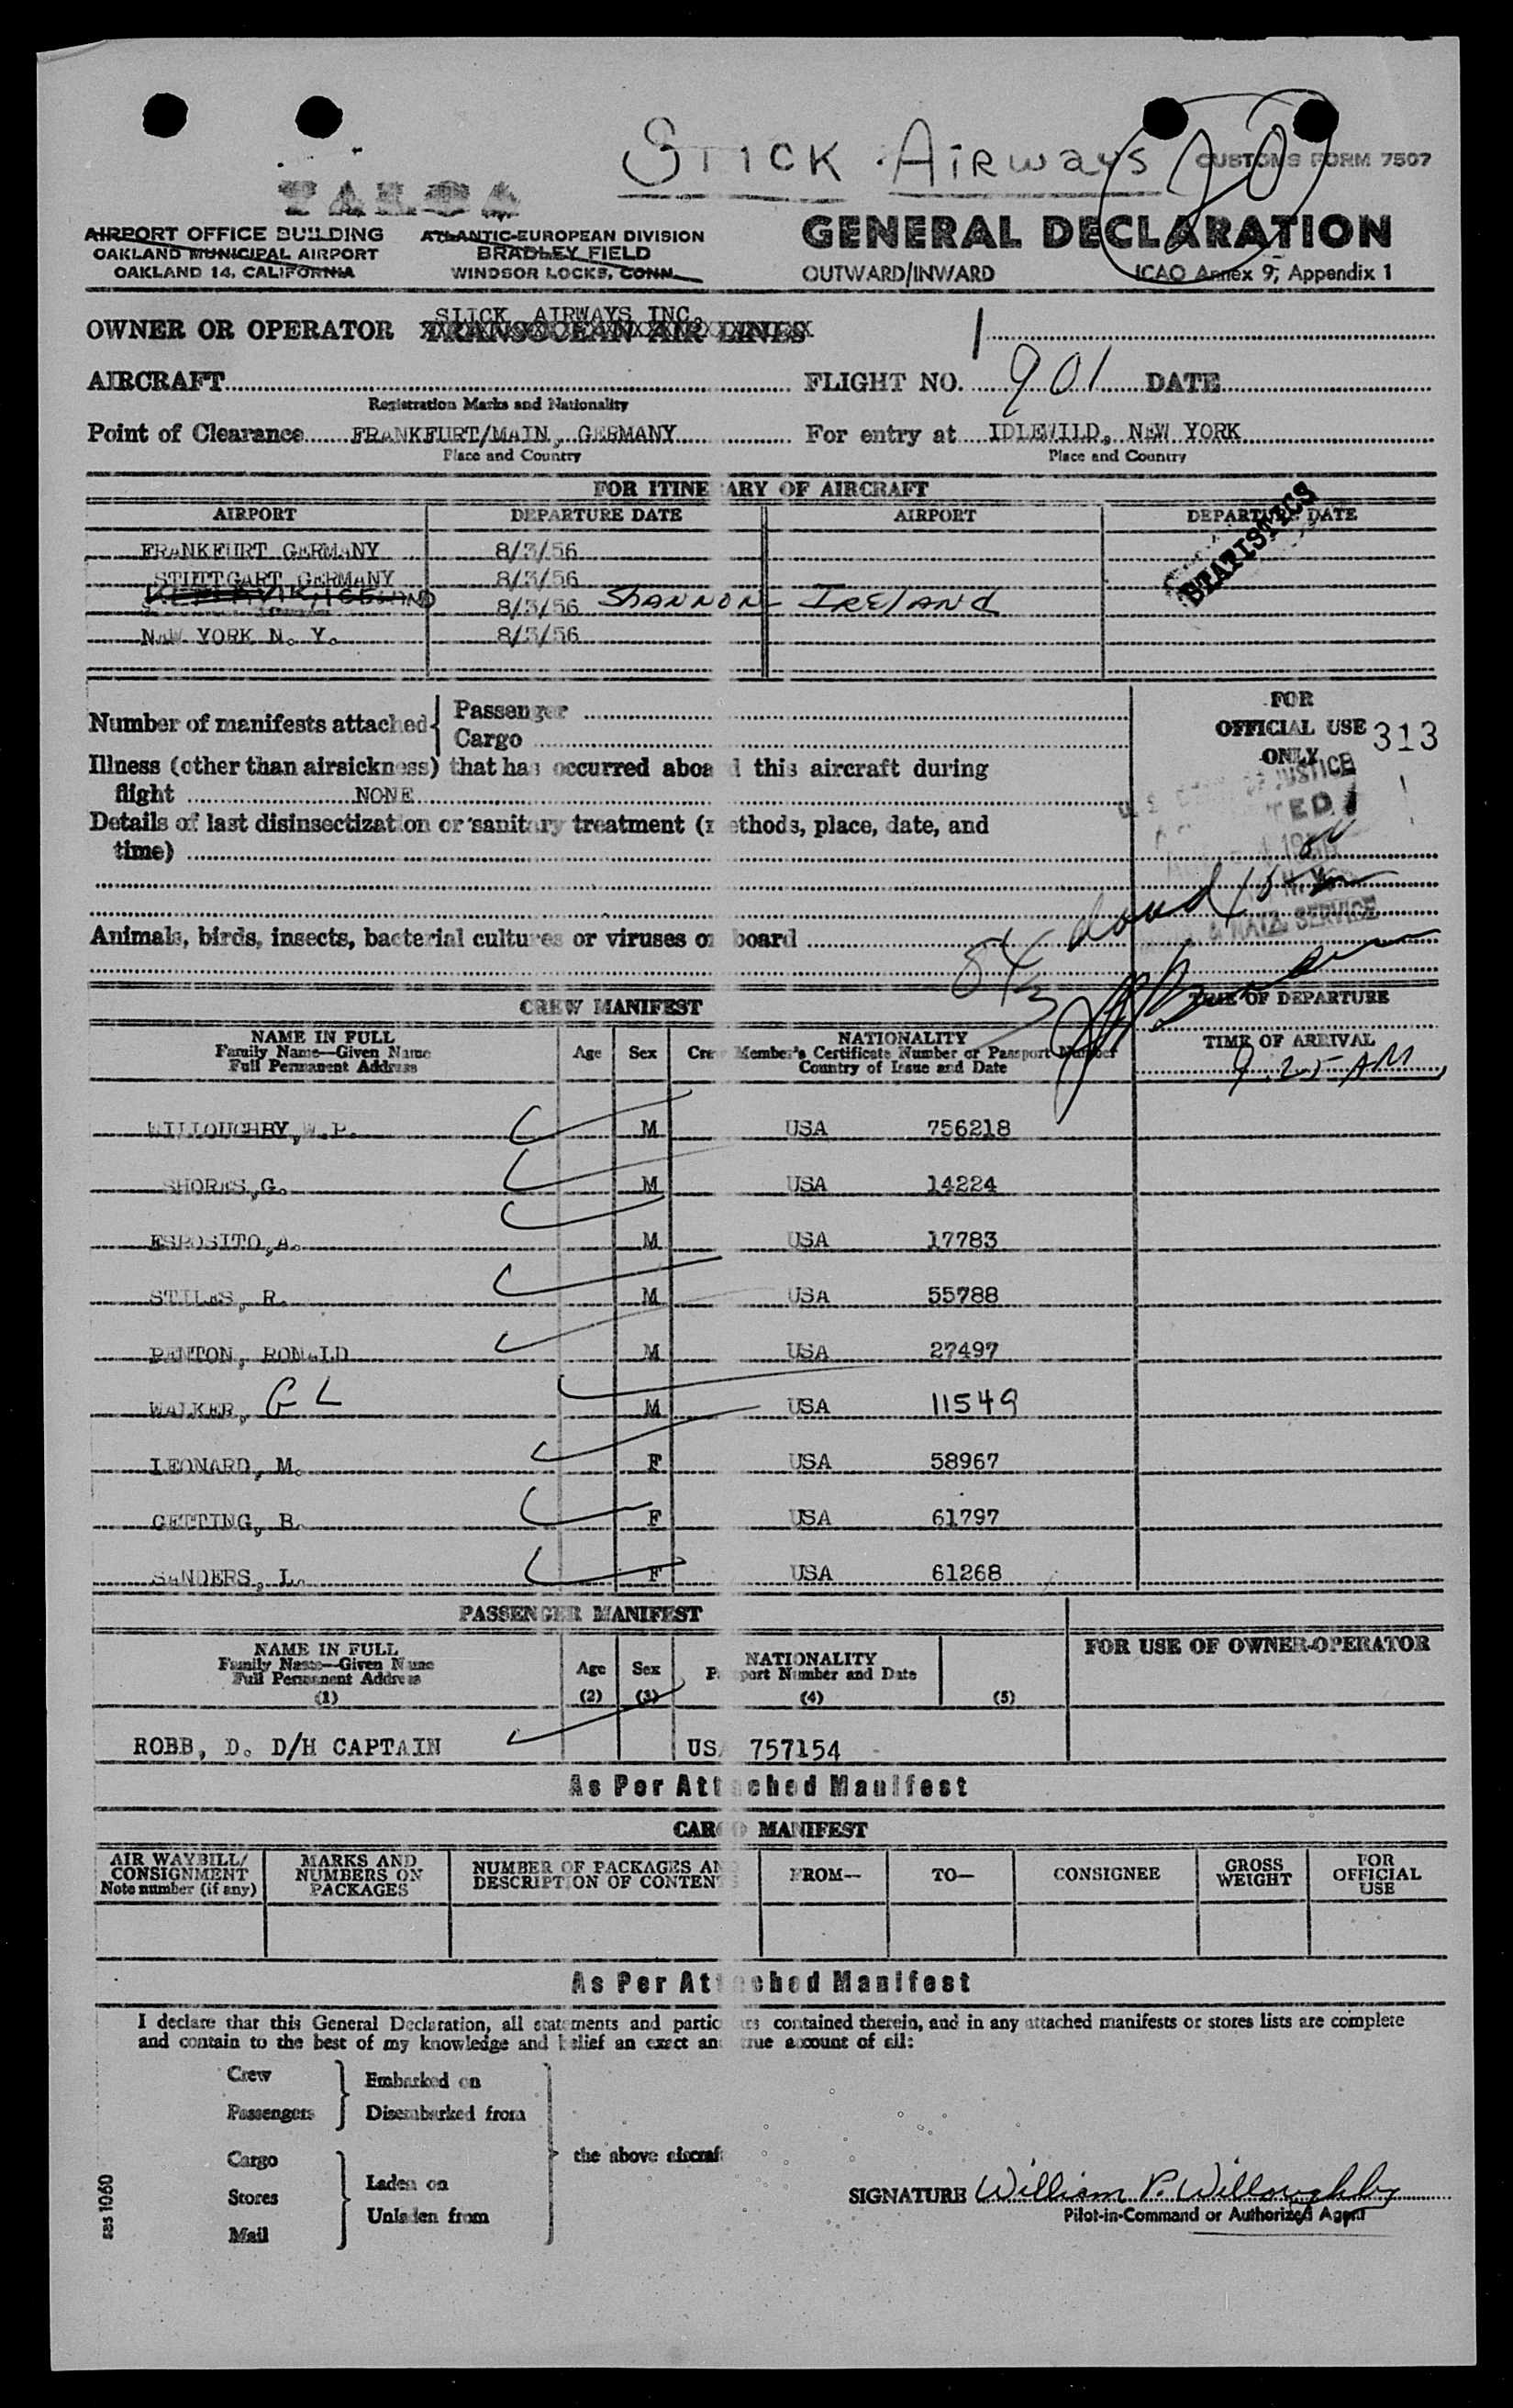 STICK AIRWAYS
20
CUSTOMS FORM 7507
AIRPORT OFFICE BUILDING
OAKLAND MUNICIPAL AIRPORT
OAKLAND 14, CALIFORNIA
ATLANTIC-EUROPEAN DIVISION
BRADLEY FIELD
WINDSOR LOCKS, CONN.
GENERAL DECLARATION
OUTWARD/INWARD
ICAO Annex 9, Appendix 1
SLICK AIRWAYS INC.
OWNER OR OPERATOR TRANSOCEAN AIR LINES
AIRCRAFT FLIGHT NO. 901 DATE
Registration Marks and Nationality
Point of Clearance FRANKFURT/MAIN, GERMANY For entry at IDLEWILD, NEW YORK
Place and Country Place and Country
FOR ITINERARY OF AIRCRAFT
AIRPORT DEPARTURE DATE AIRPORT DEPARTURE DATE
STATISTICS
FRANKFURT GERMANY 8/3/56
STUTTGART GERMANY 8/3/56
KEFLAVIK, ICELAND 8/3/56 SHANNON IRELAND
NEW YORK N. Y. 8/3/56
Number of manifests attached Passenger
Cargo
FOR
OFFICIAL USE 313
ONLY
Illness (other than airsickness) that has occurred aboard this aircraft during
flight NONE
Details of last disinsectization or sanitary treatment (methods, place, date, and
time)
Animals, birds, insects, bacterial cultures or viruses on board
CREW MANIFEST
TIME OF DEPARTURE
NAME IN FULL
Family Name—Given Name
Full Permanent Address
Age Sex
NATIONALITY
Crew Member's Certificate Number or Passport Number
Country of Issue and Date
TIME OF ARRIVAL
9:25 AM
WILLOUGHBY, W.P. M USA 756218
SHORES, G. M USA 14224
ESPOSITO, A. M USA 17783
STILES, R. M USA 55788
RENTON, RONALD M USA 27497
WALKER, G L M USA 11549
LEONARD, M. F USA 58967
GETTING, B. F USA 61797
SANDERS, L. F USA 61268
PASSENGER MANIFEST
NAME IN FULL
Family Name—Given Name
Full Permanent Address
(1)
Age
(2)
Sex
(3)
NATIONALITY
Passport Number and Date
(4) (5)
FOR USE OF OWNER-OPERATOR
ROBB, D. D/H CAPTAIN USA 757154
As Per Attached Manifest
CARGO MANIFEST
AIR WAYBILL/
CONSIGNMENT
Note number (if any)
MARKS AND
NUMBERS ON
PACKAGES
NUMBER OF PACKAGES AND
DESCRIPTION OF CONTENTS
FROM—
TO—
CONSIGNEE
GROSS
WEIGHT
FOR
OFFICIAL
USE
As Per Attached Manifest
I declare that this General Declaration, all statements and particulars contained therein, and in any attached manifests or stores lists are complete
and contain to the best of my knowledge and belief an exact and true account of all:
Crew
Passengers
Embarked on
Disembarked from
Cargo
Stores
Mail
Laden on
Unladen from
the above aircraft
sas 1060
SIGNATURE William P. Willoughby
Pilot-in-Command or Authorized Agent